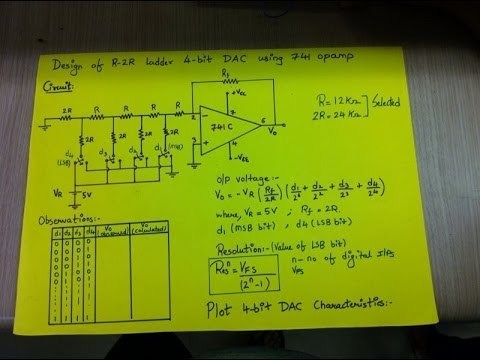 Design of R-2R ladder 4-bit DAC using 741 opamp
Circuit:-
Rf
+Vcc
2R R R R R
2R 2R 2R 2R
2 7
741C 6
3 4
Vo
-VEE
d4 d3 d2 d1
(LSB) (MSB)
VR 5V
R = 12KΩ
2R = 24KΩ
Selected
O/P voltage:-
Vo = -VR (Rf/2R) (d1/2^0 + d2/2^1 + d3/2^2 + d4/2^3)
where, VR = 5V ; Rf = 2R
d1 (MSB bit) , d4 (LSB bit)
Observations:-
d1 d2 d3 d4 Vo (observed) Vo (calculated)
0 0 0 0
0 0 0 1
Resolution:- (Value of LSB bit)
Res = VFS/(2^n-1)
n - no of digital I/Ps
VFS
Plot 4-bit DAC Characteristics:-